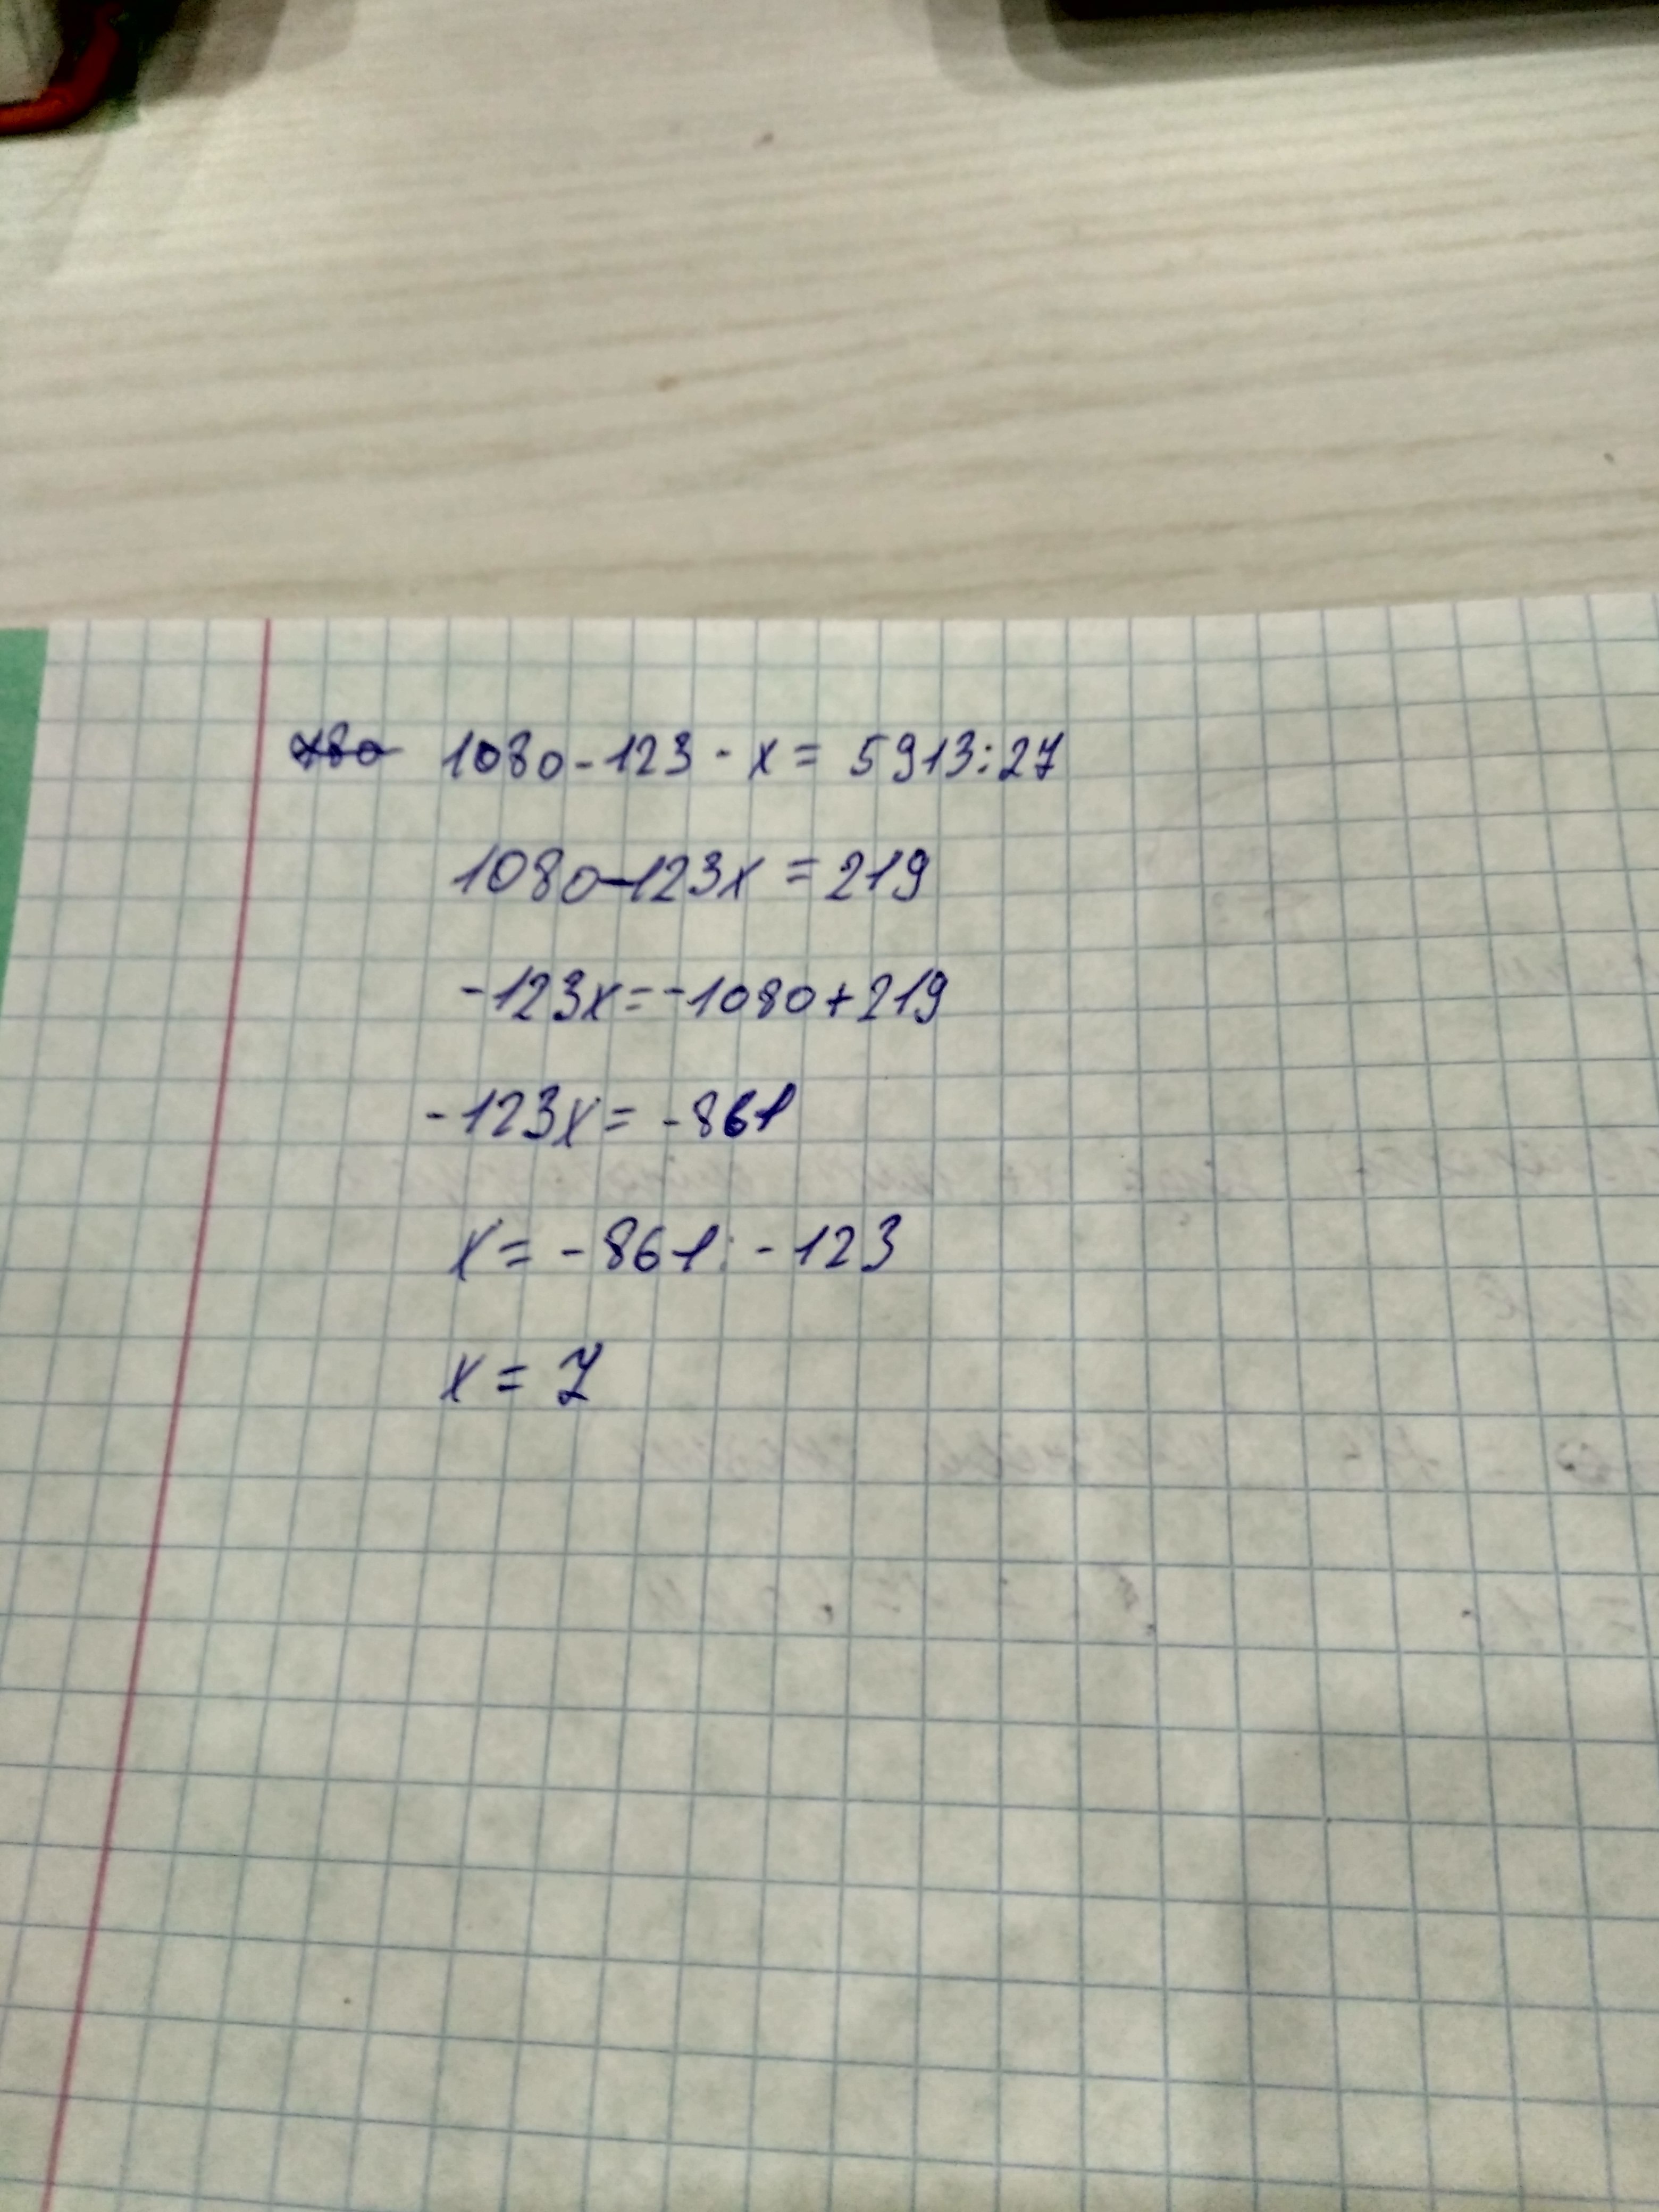 1080-123·x=5913:27
1080-123x=219
-123x=-1080+219
-123x=-861
x=-861:-123
x=7